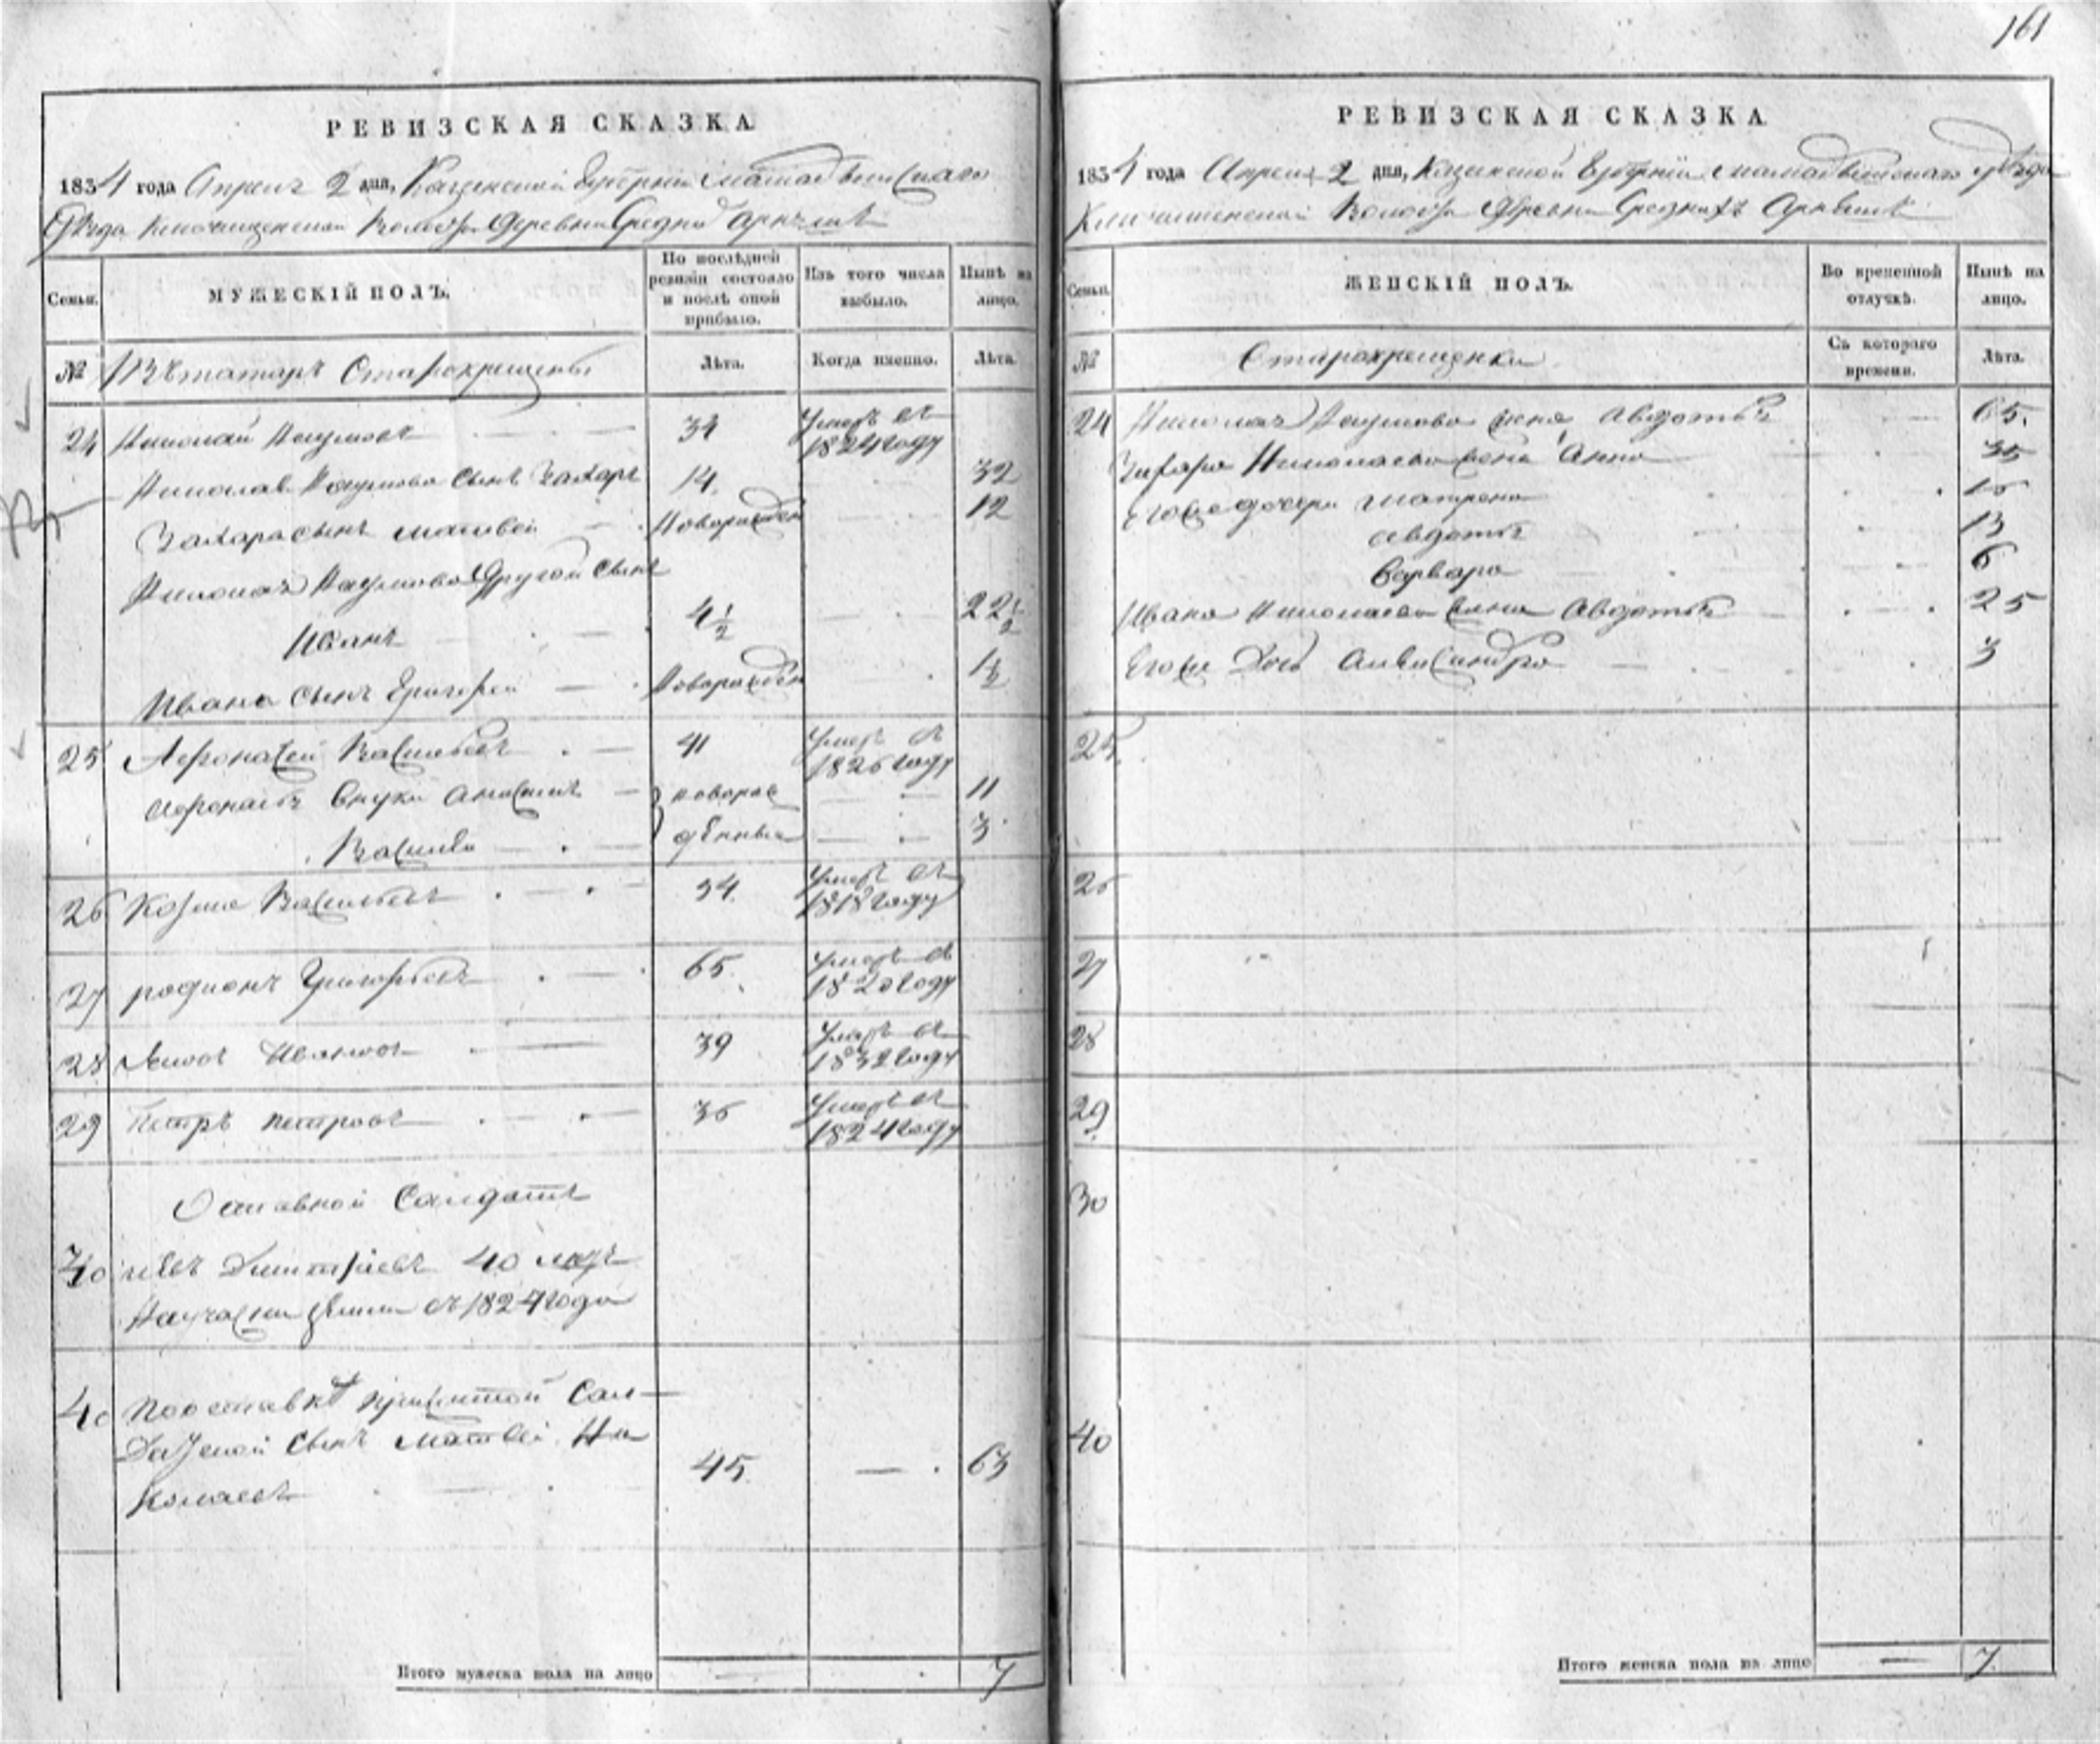 161
РЕВИЗСКАЯ СКАЗКА
1834 года Апреля 2 дня, Казанской Губернии Мамадышскаго
Уѣзда Ключищенской Волости Деревни Средни
Семьи.
МУЖЕСКІЙ ПОЛЪ.
По послѣдней ревизіи состояло и послѣ оной прибыло.
Изъ того числа выбыло.
Нынѣ на лицо.
№ Изъ татаръ Старокрещены
Лѣта.
Когда именно.
Лѣта.
24 Николай Наумовъ 34 Умеръ въ 1824 году
Николая Наумова сынъ Захаръ 14 32
Захара сынъ Матвей Новорожден 12
Николая Наумова Другой сынъ
Иванъ 4 1/2 22 1/2
Ивана сынъ Григорей Новорожден 1 1/2
25 Афонасей Васильевъ 41 Умеръ въ 1826 году
Афонасья внуки 11
новорож
Василей денные 3
26 Козма Васильевъ 34 Умеръ въ 1818 году
27 родионъ Григорьевъ 65 Умеръ въ 1820 году
28 Ивановъ 39 Умеръ въ 1832 году
29 Петръ Петровъ 36 Умеръ въ 1824 году
Салдатъ
30 Дмитріевъ 40 летъ
съ 1824 года
40 Сал-
датской сынъ Матвей Ни
колаевъ 45 63
Итого мужеска пола на лицо — 7
РЕВИЗСКАЯ СКАЗКА
1834 года Апреля 2 дня, Казанской Губерніи Мамадышскаго уѣзда
Ключищенской Волости Деревни Среднихъ
Семьи.
ЖЕНСКІЙ ПОЛЪ.
Во временной отлучкѣ.
Нынѣ на лицо.
№ Старокрещенки
Съ котораго времени.
Лѣта.
24 Николая Наумова жена Авдотья 65
Захара Николаева жена Анна 35
Егоже дочери Матрена 16
Авдотья 13
Варвара 6
Ивана Николаева жена Авдотья 25
Егоже Дочь Александра 3
25
26
27
28
29
30
40
Итого женска пола на лицо — 7